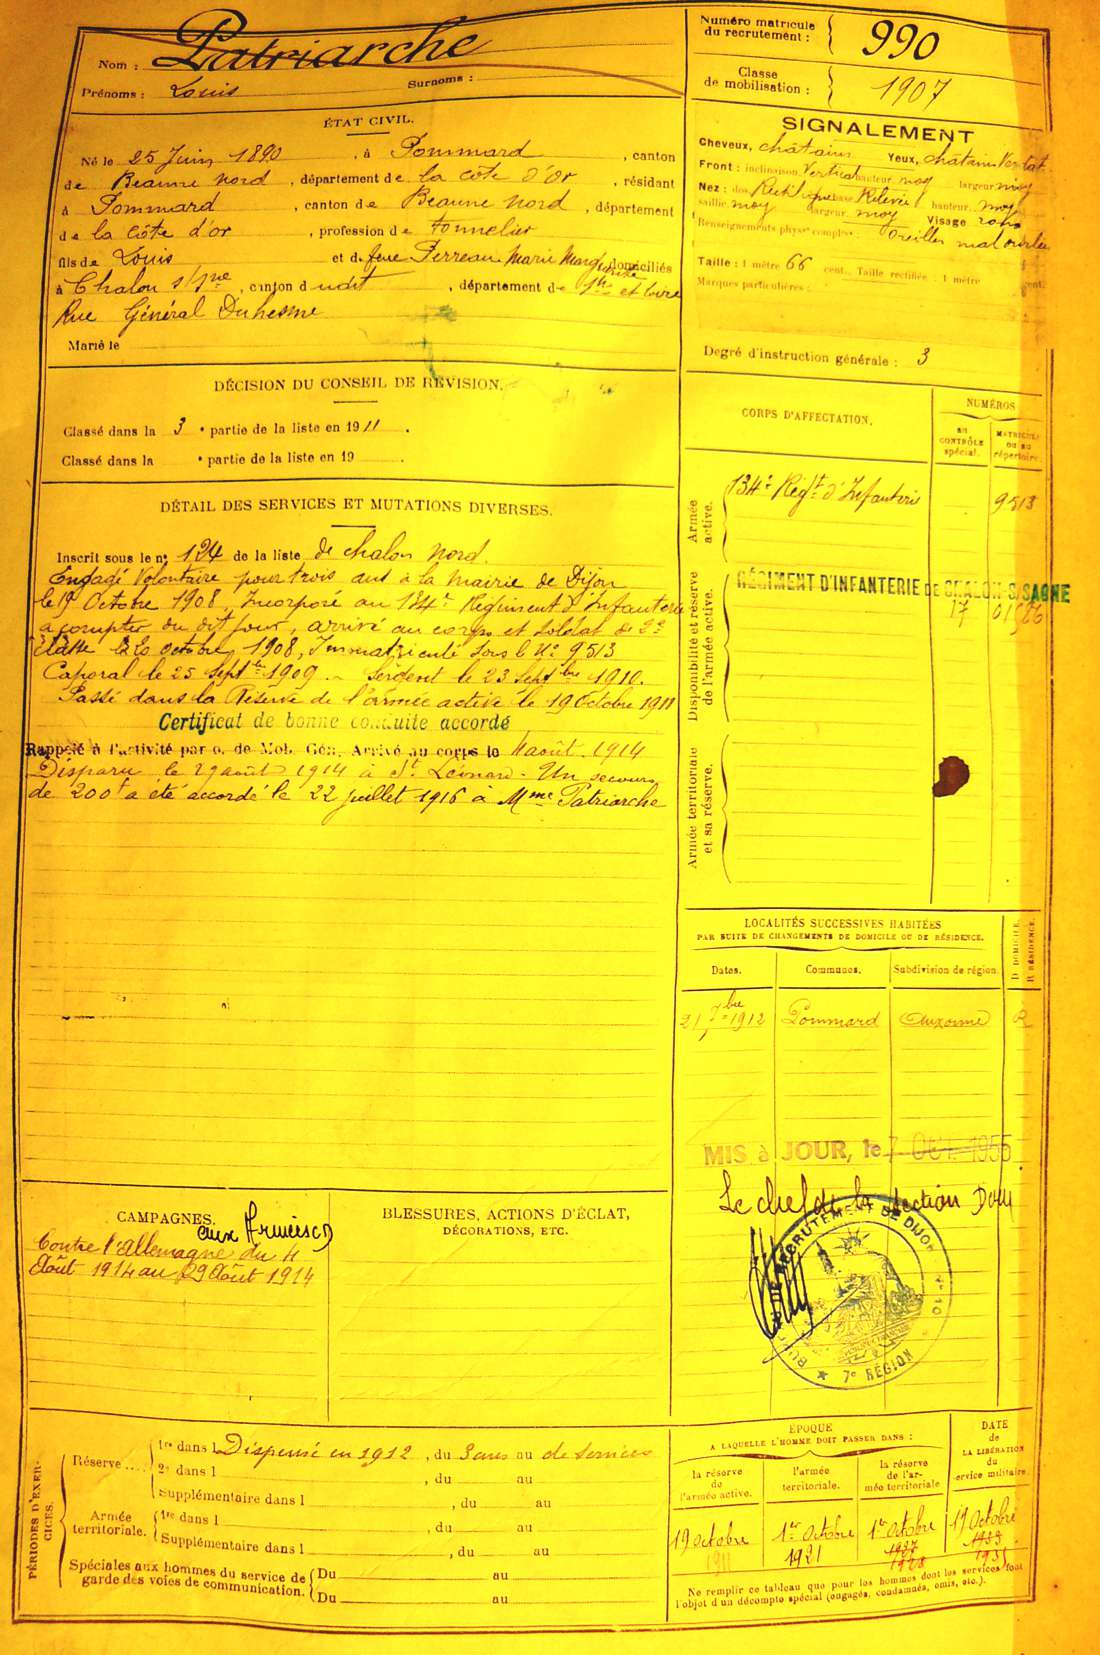 Nom : Patriarche
Prénoms : Louis Surnoms :
Numéro matricule
du recrutement : 990
Classe
de mobilisation : 1907
ÉTAT CIVIL.
Né le 25 Juin 1890, à Pommard, canton
de Beaune Nord, département de la Côte d'Or, résidant
à Pommard, canton de Beaune Nord, département
de la Côte d'or, profession de tonnelier
fils de Louis et de feue Perreau Marie Marguerite domiciliés
à Chalon s/Sne, canton dudit, département de Sne et Loire
Rue Général Duhesme
Marié le
SIGNALEMENT
Cheveux, châtains Yeux, châtain
Front : inclinaison Vertical hauteur moy largeur moy
Nez : dos Rectiligne base Relevée hauteur moy
saillie moy largeur moy Visage rond
Renseignements physes complres : Oreilles mal ourlées
Taille : 1 mètre 66 cent. Taille rectifiée : 1 mètre cent.
Marques particulières :
Degré d'instruction générale : 3
DÉCISION DU CONSEIL DE REVISION.
Classé dans la 3e partie de la liste en 1911.
Classé dans la e partie de la liste en 19
DÉTAIL DES SERVICES ET MUTATIONS DIVERSES.
Inscrit sous le no 124 de la liste de Chalon Nord.
Engagé Volontaire pour trois ans à la mairie de Dijon
le 19 Octobre 1908. Incorporé au 134e Régiment d'Infanterie
à compter du dit jour, arrivé au corps et soldat de 2e
classe le 20 octobre 1908, Immatriculé sous le No 9513
Caporal le 25 septbre 1909. - Sergent le 23 septbre 1910.
Passé dans la Réserve de l'armée active le 19 Octobre 1911
Certificat de bonne conduite accordé
Rappelé à l'activité par o. de Mob. Gén. Arrivé au corps le 4 août 1914
Disparu le 29 août 1914 à St Léonard. Un secours
de 200f a été accordé le 22 juillet 1916 à Mme Patriarche
CORPS D'AFFECTATION.
NUMÉROS
au
CONTRÔLE
spécial.
MATRICULE
ou au
répertoire.
Armée
active.
134e Régt d'Infanterie 9513
Disponibilité et réserve
de l'armée active.
RÉGIMENT D'INFANTERIE DE CHALON-S/SAÔNE
17 01586
Armée territoriale
et sa réserve.
LOCALITÉS SUCCESSIVES HABITÉES
PAR SUITE DE CHANGEMENTS DE DOMICILE OU DE RÉSIDENCE.
Dates. Communes. Subdivision de région.
D DOMICILE.
R RÉSIDENCE.
21 7bre 1912 Pommard Auxonne R
MIS à JOUR, le 7 OCT. 1955
Le chef de la section
BUREAU DE RECRUTEMENT DE DIJON No 10
7e RÉGION
CAMPAGNES.
Contre l'allemagne du 4
Août 1914 au 29 Août 1914
BLESSURES, ACTIONS D'ÉCLAT,
DÉCORATIONS, ETC.
PÉRIODES D'EXERCICES.
Réserve ....
1re dans l Dispensé en 1912, du 3 ans au de services
2e dans l , du au
Supplémentaire dans l , du au
Armée
territoriale.
1re dans l , du au
Supplémentaire dans l , du au
Spéciales aux hommes du service de
garde des voies de communication.
Du au
Du au
ÉPOQUE
A LAQUELLE L'HOMME DOIT PASSER DANS :
DATE
de
LA LIBÉRATION
du
service militaire.
la réserve
de
l'armée active.
l'armée
territoriale.
la réserve
de l'armée territoriale
19 octobre
1911
1er Octobre
1921
1er octobre
1927
1928
19 Octobre
1933
1935
Ne remplir ce tableau que pour les hommes dont les services font
l'objet d'un décompte spécial (engagés, condamnés, omis, etc.).